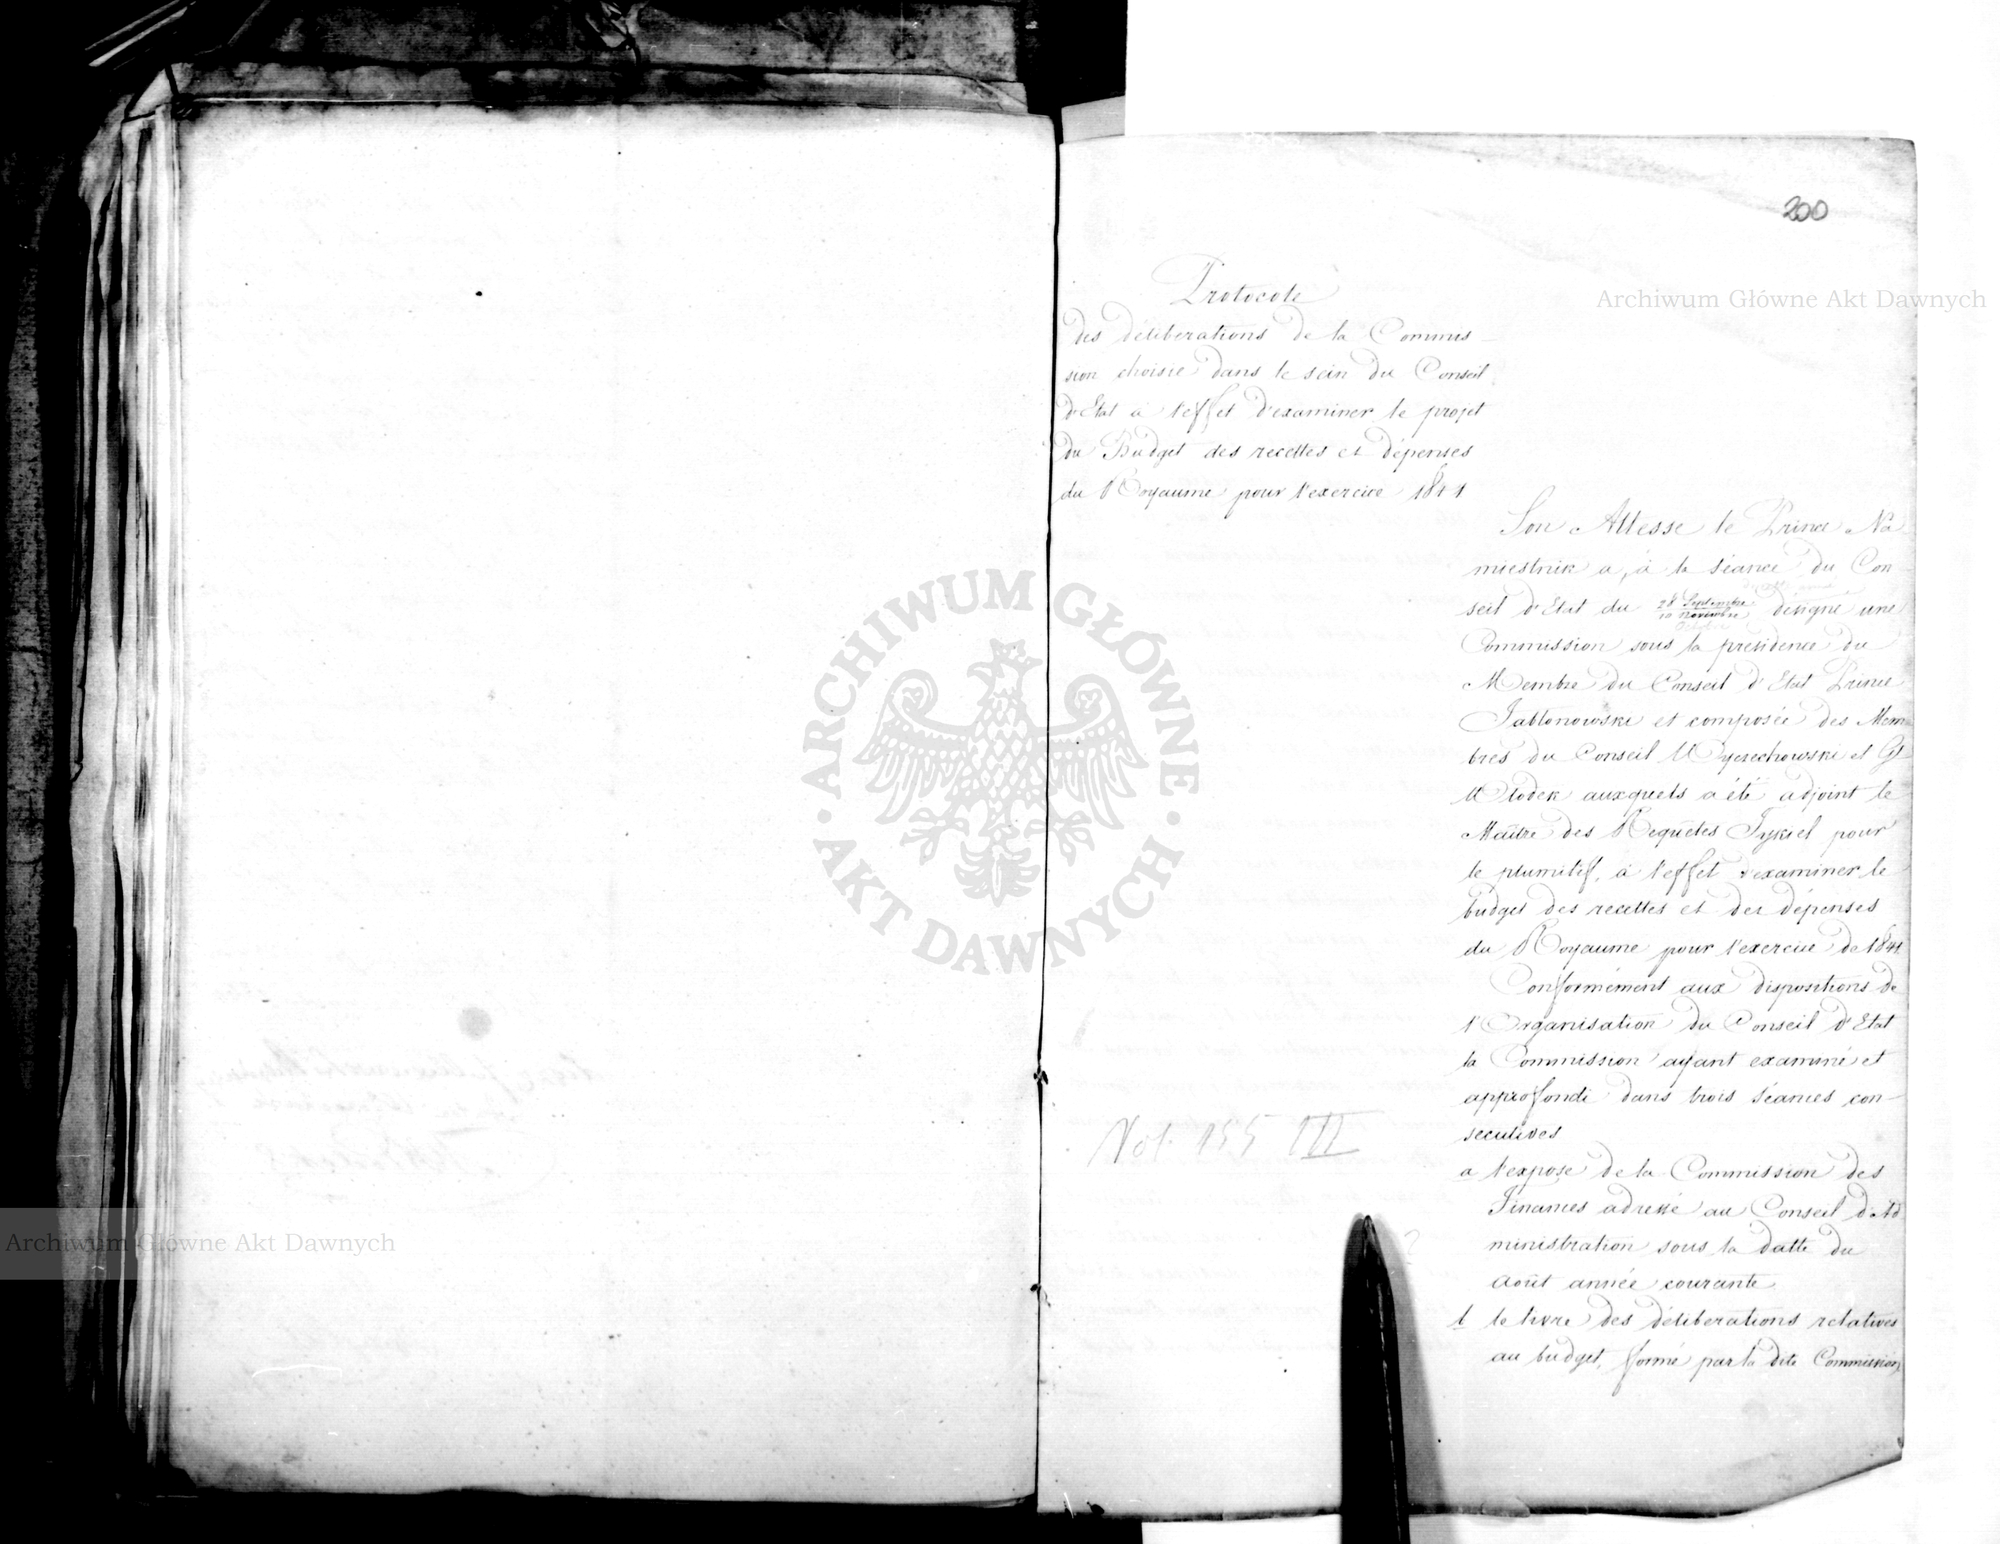 200
Protocole
des délibérations de la Commis-
sion choisie dans le sein du Conseil
d'Etat à l'effet d'examiner le projet
du Budget des recettes et dépenses
du Royaume pour l'exercice 1841
Son Altesse le Prince Na
miestnik a, à la séance du Con-
seil d'Etat du 28 Septembre / 10 Novembre désigné une
Octobre
Commission sous la présidence du
Membre du Conseil d'Etat Prince
Jabłonowski et composée des Mem
bres du Conseil Wyczechowski et
Włodek auxquels a été adjoint le
Maître des Requêtes Tykiel pour
le plumitif, à l'effet d'examiner le
budget des recettes et des dépenses
du Royaume pour l'exercice de 1841.
Conformément aux dispositions de
l'Organisation du Conseil d'Etat
la Commission ayant examiné et
approfondi dans trois séances con-
secutives
a l'exposé de la Commission des
Finances adressé au Conseil d'Ad
ministration sous la datte du
Août année courante
b le livre des délibérations relatives
au budget, formé par la dite Commission,
Vol. 155 III
Archiwum Główne Akt Dawnych
Archiwum Główne Akt Dawnych
ARCHIWUM GŁÓWNE
· AKT DAWNYCH ·